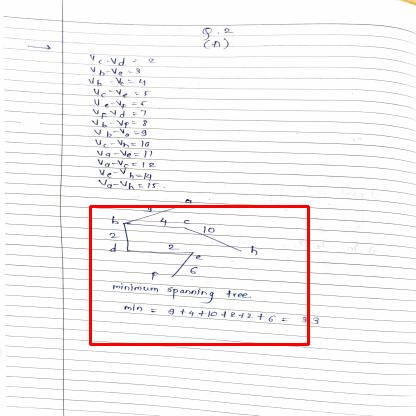 Q.2
(A)
Vc-Vd = 2
Vb-Ve = 3
Vb-Vc = 4
Vc-Ve = 5
Ve-Vf = 6
Vf Vd = 7
Vb-Vf = 8
Vb-Va = 9
Vc-Vh = 10
Va-Ve = 11
Va-Vc = 12
Ve-Vh = 14
Va-Vh = 15.
a
9
b 4 c
10
2
d 2 e h
f 6
minimum spanning tree.
min = 9+4+10+2+2+6 = 33